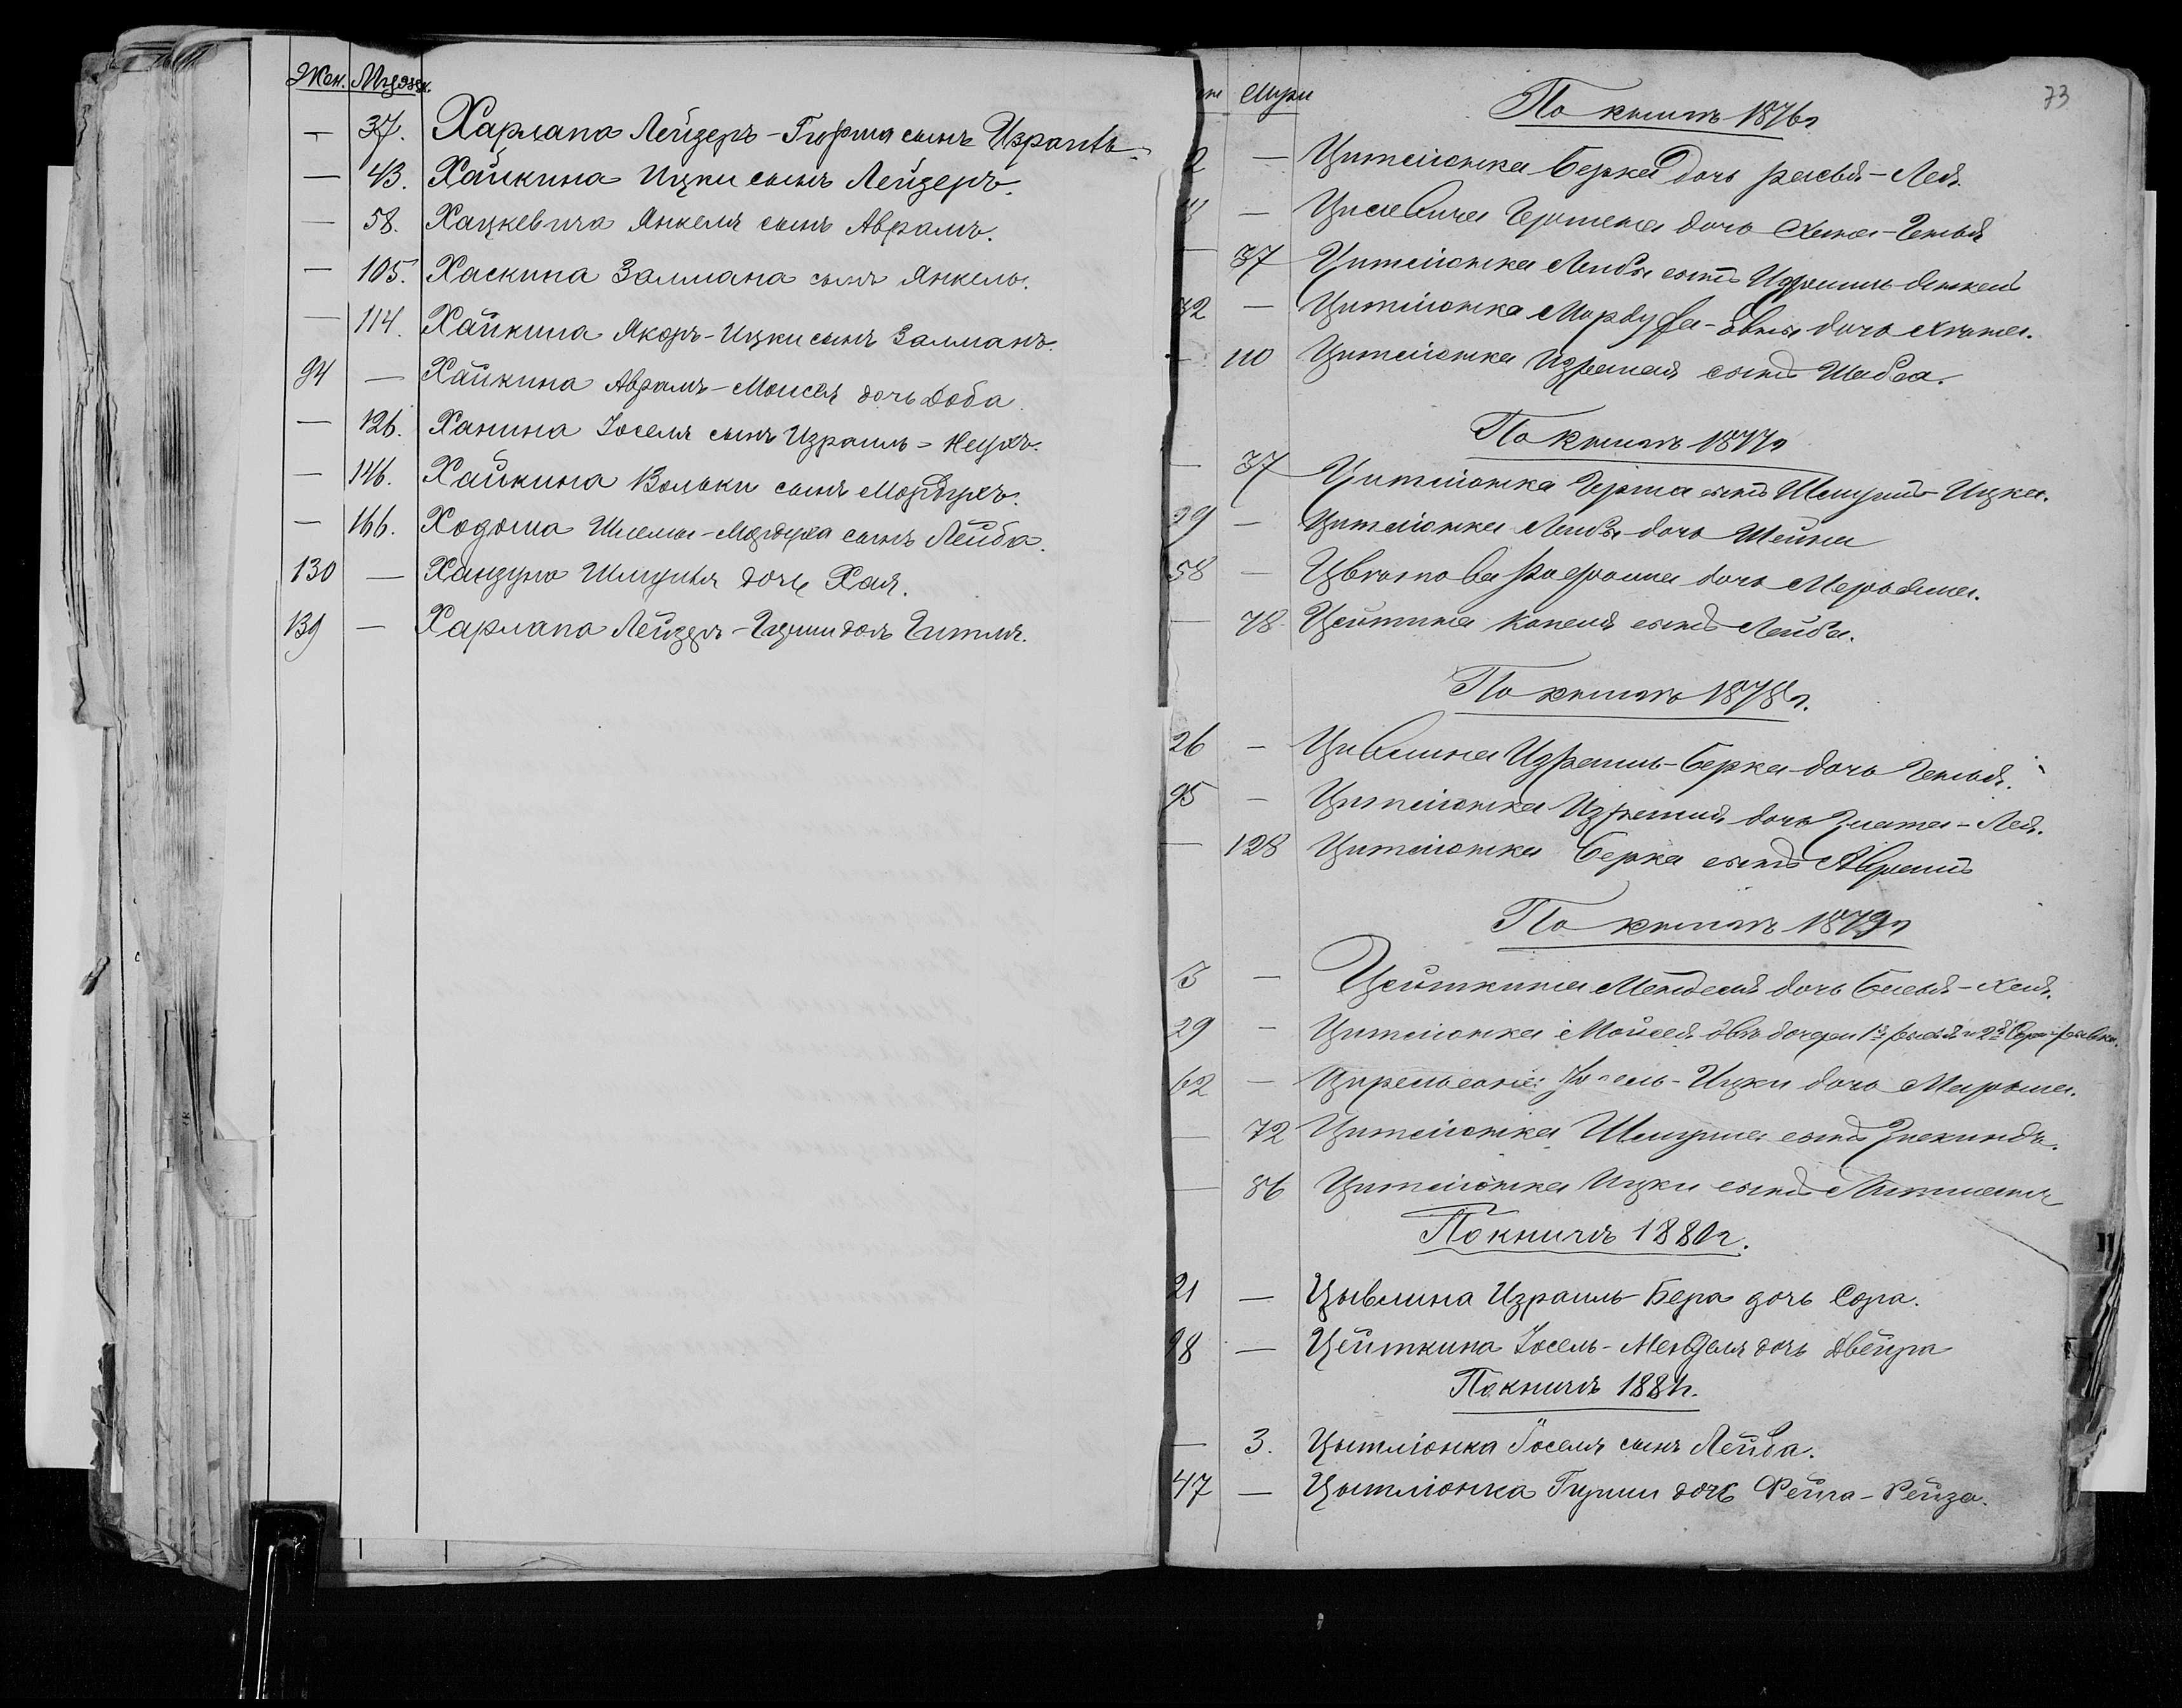 Жен. Мужск.
— 37. Харлапа Лейзеръ-Гирша сынъ Израиль.
— 43. Хайкина Ицки сынъ Лейзеръ.
— 58. Хацкевича Янкеля сынъ Абрамъ.
— 105. Хаскина Залмана сынъ Янкель.
— 114. Хайкина Якоръ-Ицки сынъ Залманъ.
94 — Хайкина Абрамъ-Моисея дочь Доба.
— 126. Ханина Іоселя сынъ Израиль-Неухъ.
— 146. Хайкина Вольки сынъ Мордухъ.
— 166. Ходоша Шлемы-Мордуха сынъ Лейба.
130 — Шмуйля дочь Хая.
139 — Харлапа Лейзеръ-Гирши дочь Гитля.
73
Мужи
По книгѣ 1876г
2 — Цитліонка Берка дочь Рася-Лея.
— дочь Хана-Генья
— 37 Цитліонка Лейбы сынъ Израиль-Янкель
72 — Цитліонка Мордуха- дочь
— 110 Цитліонка Израиля сынъ Шевса.
По книгѣ 1877г
— 37 Цитліонка Гирша сынъ Шмуйло-Ицка.
39 — Цитліонка Лейбы дочь Шейна
58 — Цвѣткова дочь Мерьяша.
— 78 Цейтина Копеля сынъ Лейба.
По книгѣ 1878г.
26 — Цивлина Израиль-Берка дочь Генья.
95 — Цитліонка Израиля дочь Злата-Лея.
— 128 Цитліонка Берка сынъ Абрамъ
По книгѣ 1879г
— Цейткина Менделя дочь Бася-Хая.
29 — Цитліонка Моисея двѣ дочери 1я и 2я
62 — Іосель-Ицки дочь Марьяша.
— 72 Цитліонка Шмуйла сынъ Зискиндъ.
— 86 Цитліонка Ицки сынъ
По книгѣ 1880г.
21 — Цывлина Израиль-Бера дочь Сора.
98 — Цейткина Іосель-Менделя дочь Двейра
По книгѣ 1881г.
— 3. Цытліонка Іоселя сынъ Лейба.
47 — Цытліонка Гирши дочь Фейга-Рейза.